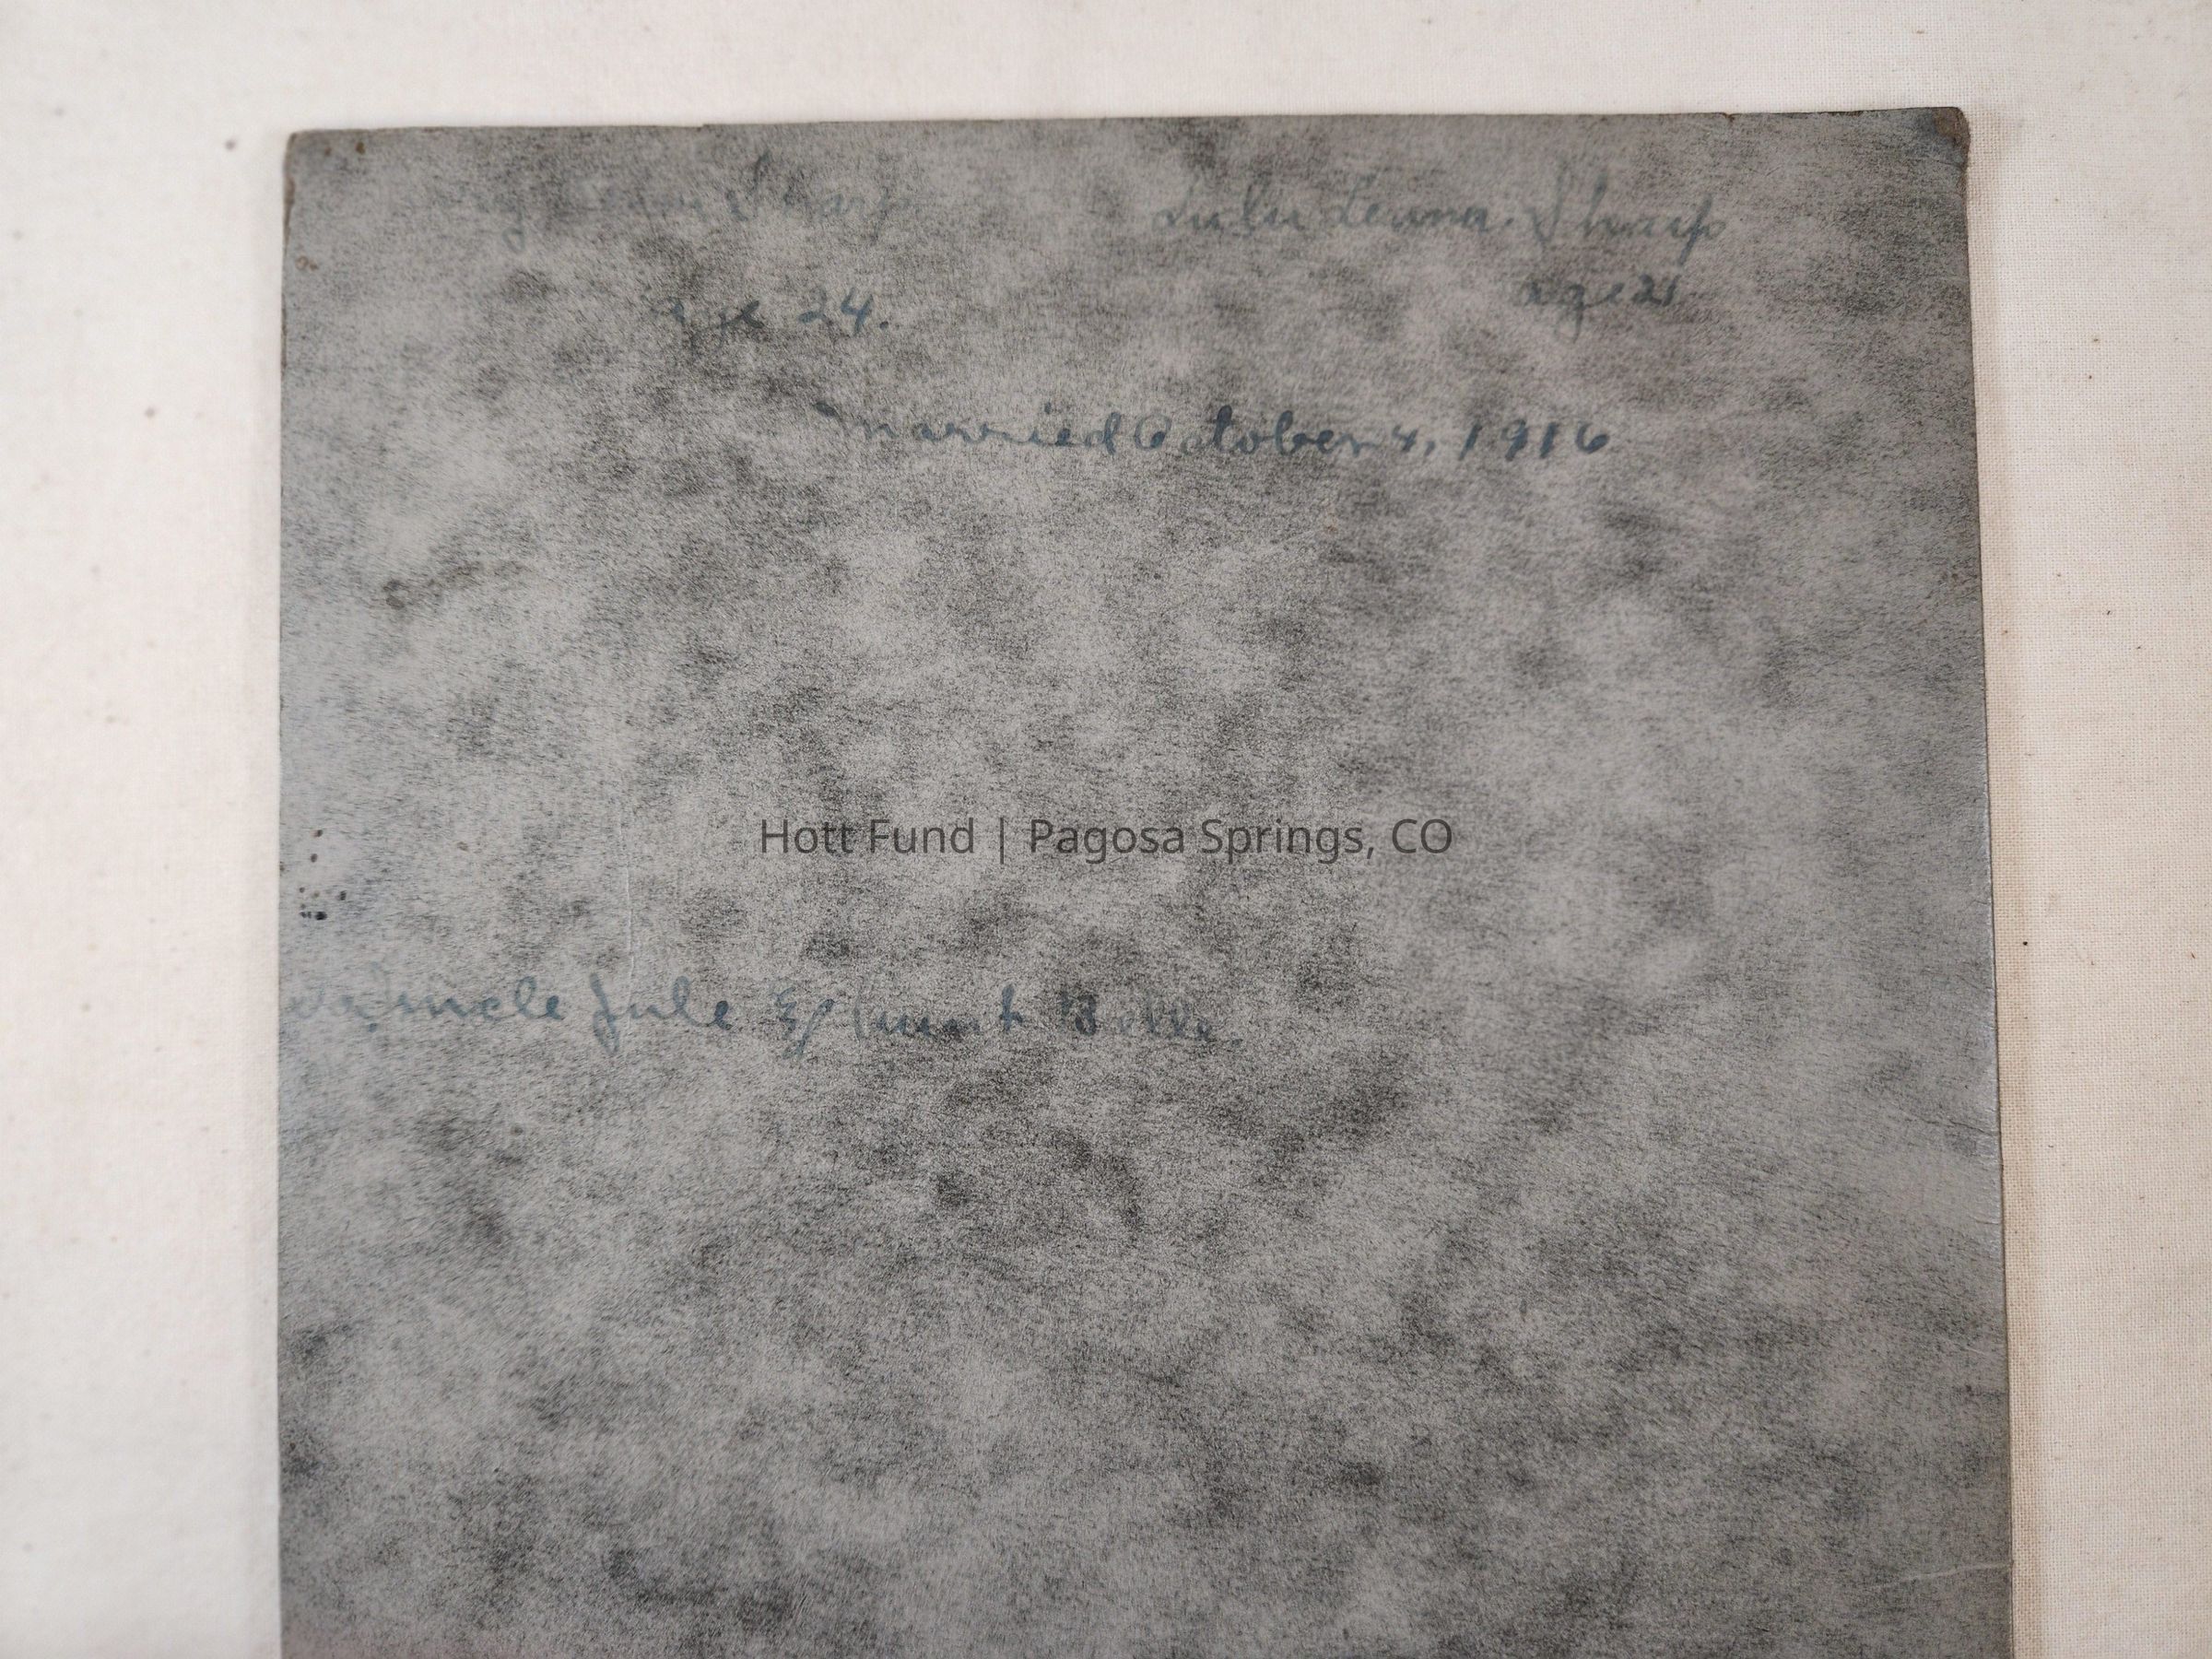 Sharp Lulu Leuna Sharp
age 24. age 21
Married October 4, 1916
Hott Fund | Pagosa Springs, CO
Uncle Jule & Aunt Belle.